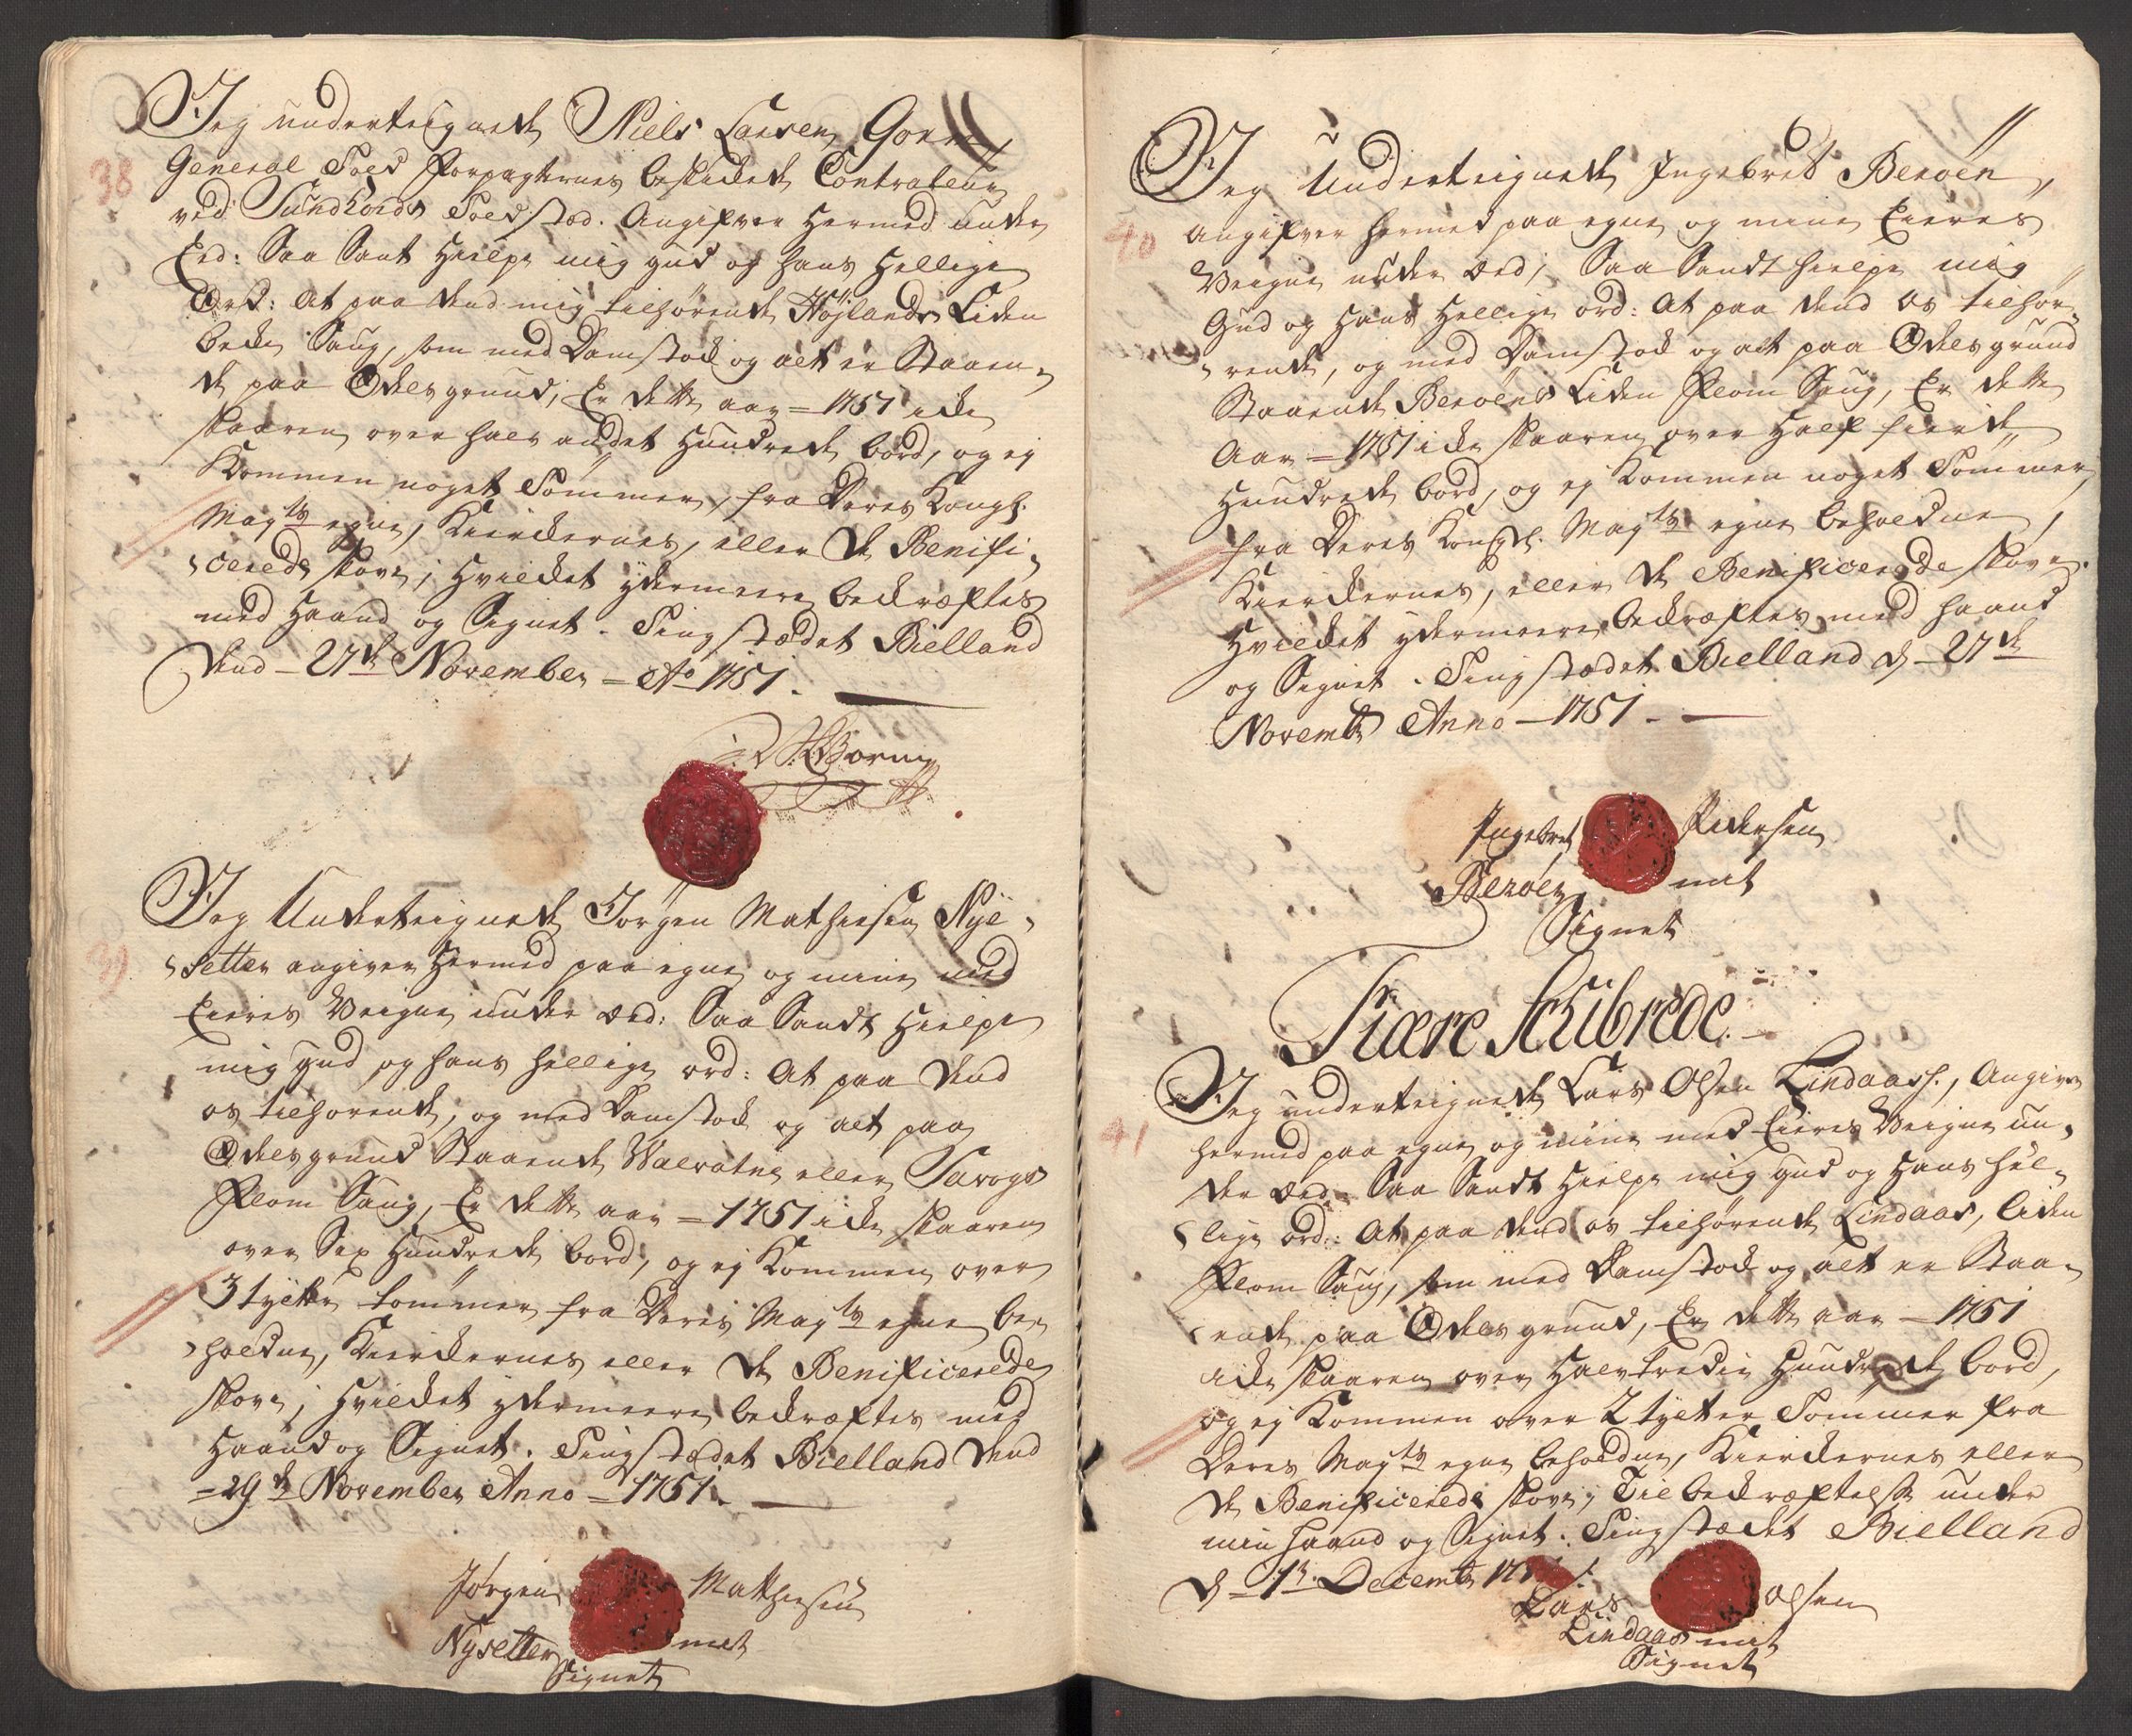 38
Jeg underteignede Niels Larsen Gorm
General Told Forpagternes beskickede Contraleur
ved Sundhords Toldsted. Angifver Hermed under
Eed: Saa Sant Hielpe mig gud og hans Hellige
Ord: At paa dend mig tilhørende Højlands Liden
becke Saug, som med Damstock og alt er Staaen-
de paa Odelsgrund, Er dette aar = 1751 icke
skaaren over halv andet Hundrede bord, og ej
Kommen noget Tømmer, fra Deres Kongl:
Mayts egne, Kierckernes, eller de Benifi-
cerede skove; Hvilcket ydermeere bekræftes
med Haand og Signet. Tingstædet Bielland
dend - 27de November - Ao 1751.
N: L: Gorm
39
Jeg Underteignede Jørgen Mathiesen Nye-
setter angiver Hermed paa egne og mine med
Eieres Veigne under Eed: Saa Sandt Hielpe
mig gud og hans hellige ord: At paa dend
os tilhørende, og med Damstock og alt paa
Odelsgrund Staaende Valvatne eller Tavogs
Flom Saug, Er dette aar = 1751 icke skaaren
over Sex Hundrede bord, og ej Kommen over
3 tylter tømmer fra Deris Mayts egne be-
holdne, Kierckernes eller de Benificerede
skove; Hvilcket ydermeere bekræftes med
Haand og Signet. Tingstædet Bielland dend
= 29de November Anno = 1751.
Jørgen Mathiesen
Nysetter mit
Signet
40
Jeg Underteignede Ingebret Berøen,
angifver hermed paa egne og mine Eieres
Veigne under Eed; Saa Sandt hielpe mig
Gud og Hans Hellige ord: At paa dend os tilhør-
rende, og med Damstock og alt paa Odelsgrund
Staaende Berøens Liden Flom Saug, Er dette
Aar = 1751 icke skaaren over Half fierde
Hundrede bord, og ej Kommen noget Tømmer,
fra Deres Kongl. Mayts egne beholdne,
Kierckernes, eller de Benificerede skove.
Hvilcket ydermeere bekræftes med haand
og Signet. Tingstædet Bielland d - 27de
Novembr Anno - 1751.
Ingebret Pedersen
Berøen mit
Signet
Fiære Schibrede.
41
Jeg underteignede Lars Olsen Lindaas, Angiver
hermed paa egne og mine med Eieres Veigne un-
der Eed Saa Sandt Hielpe mig gud og Hans hel-
lige ord: At paa dend os tilhørende Lindaas, liden
Flom Saug, som med Damstock og alt er Staa-
ende paa Odels grund, Er dette aar - 1751
icke skaaren over Halvtredie Hundrede bord,
og ej Kommen over 2 tylter Tømmer fra
Deres Mayts egne beholdne, Kierckernes eller
de Benificerede skove; Til bekræftelse under
min Haand og Signet. Tingstædet Bielland
d = 1te Decembr 1751.
Lars Olsen
Lindaas mit
Signet